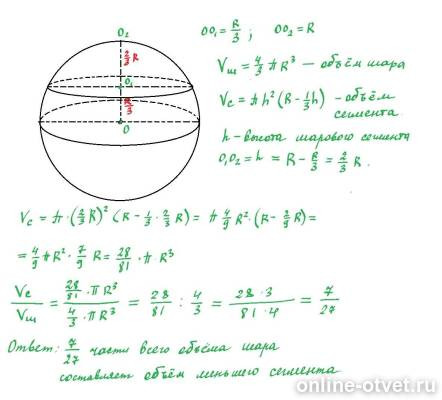 O₂
2/3 R
O₁
R/3
O
OO₁ = R/3 ; OO₂ = R
Vш = 4/3 πR³ — объём шара
Vс = πh² (R - 1/3 h) - объём
сегмента
h - высота шарового сегмента
O₁O₂ = h = R - R/3 = 2/3 R.
Vс = π · (2/3 R)² (R - 1/3 · 2/3 R) = π 4/9 R² · (R - 2/9 R) =
= 4/9 πR² · 7/9 R = 28/81 · π · R³
Vс/Vш = (28/81 · πR³)/(4/3 · πR³) = 28/81 : 4/3 = (28 · 3)/(81 · 4) = 7/27
Ответ: 7/27 части всего объёма шара
составляет объём меньшего сегмента
online-otvet.ru